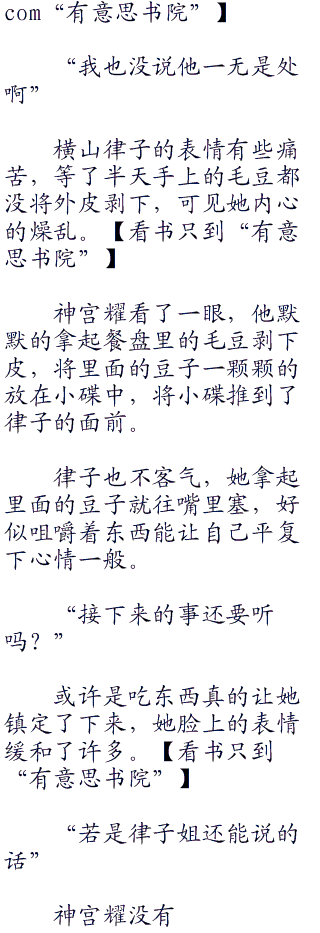 com“有意思书院”】
“我也没说他一无是处
啊”
横山律子的表情有些痛
苦，等了半天手上的毛豆都
没将外皮剥下，可见她内心
的燥乱。【看书只到“有意
思书院”】
神宫耀看了一眼，他默
默的拿起餐盘里的毛豆剥下
皮，将里面的豆子一颗颗的
放在小碟中，将小碟推到了
律子的面前。
律子也不客气，她拿起
里面的豆子就往嘴里塞，好
似咀嚼着东西能让自己平复
下心情一般。
“接下来的事还要听
吗？”
或许是吃东西真的让她
镇定了下来，她脸上的表情
缓和了许多。【看书只到
“有意思书院”】
“若是律子姐还能说的
话”
神宫耀没有